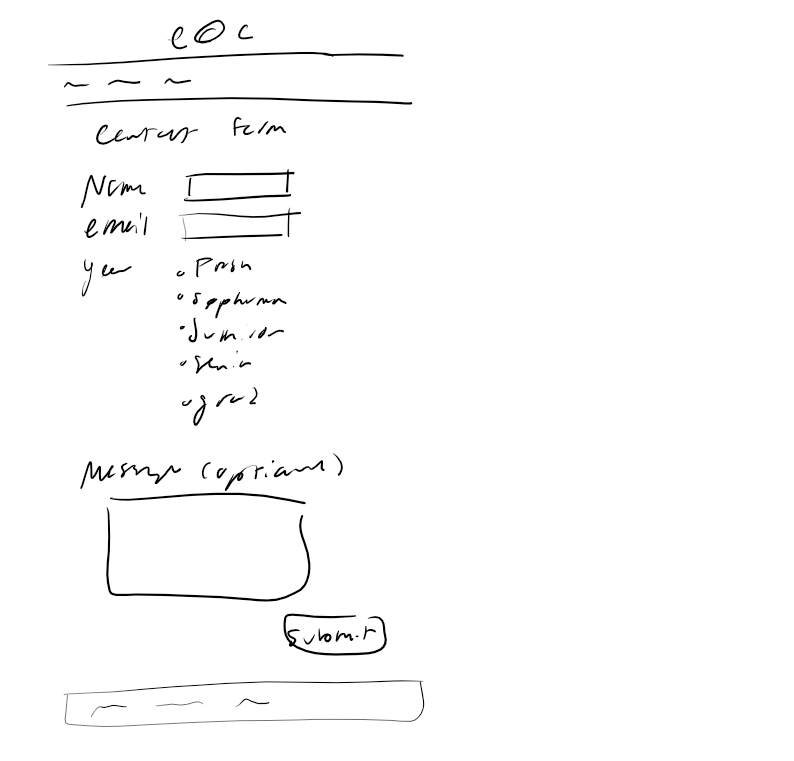 eOc
Contact Form
Name
email
year
Fresh
Sophomore
Junior
Senior
grad
Message (optional)
Submit